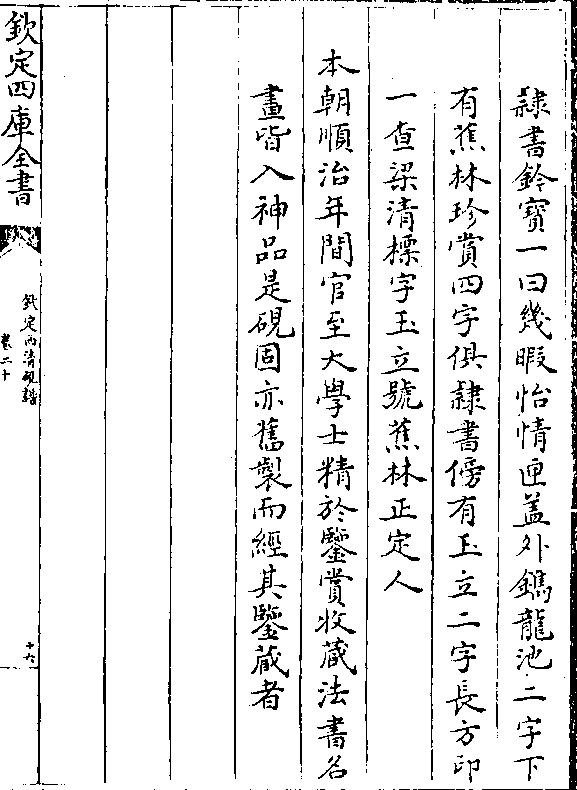 隷書鈐寳一曰幾暇怡情匣葢外鐫龍池二字下
有蕉林珍賞四字俱隷書傍有玉立二字長方印
一查梁清標字玉立號蕉林正定人
本朝順治年間官至大學士精於鑒賞收蔵法書名
畫皆入神品是硯固亦舊製而經其鑒蔵者
欽定四庫全書
欽定西清硯譜
卷二十